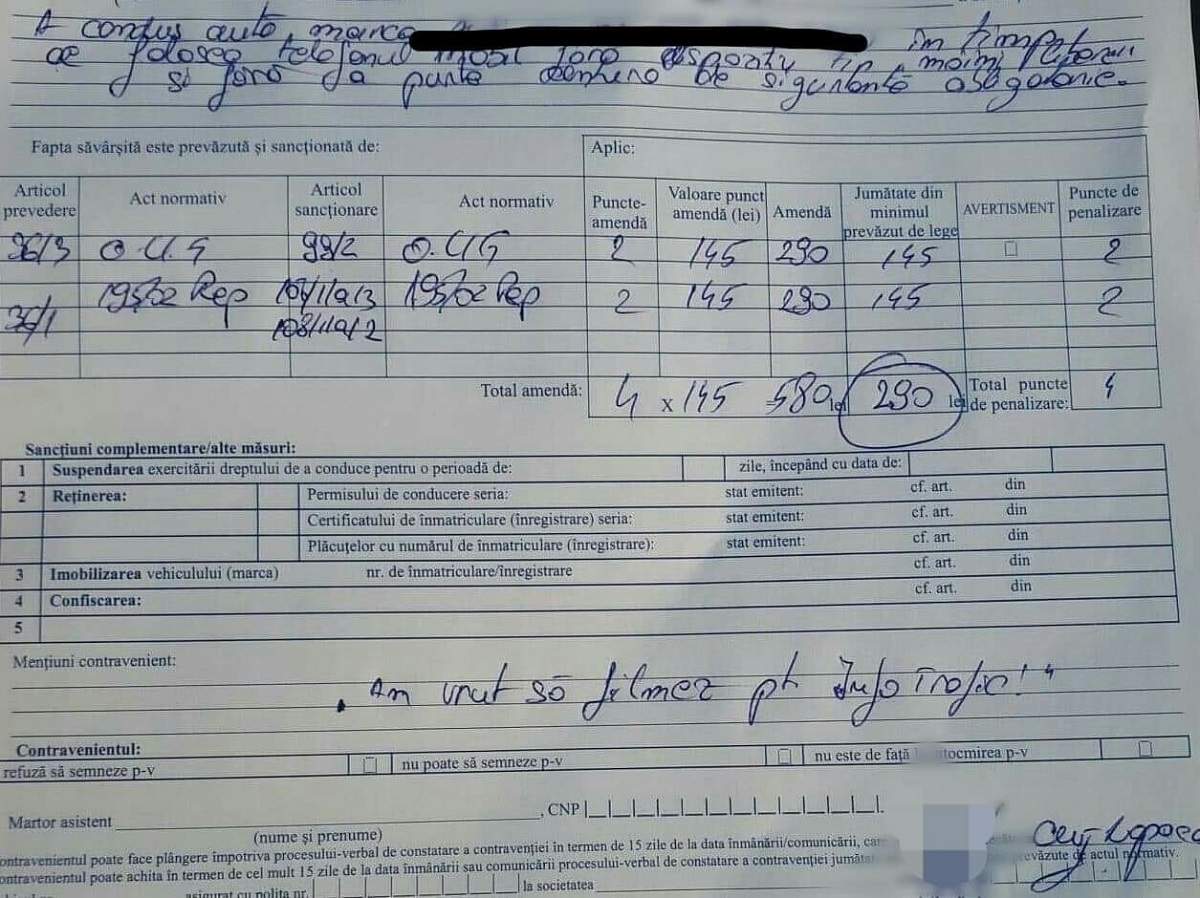 A condus auto, marca în timp
ce folosea telefonul mobil fără dispozitiv tip "mâini libere"
și fără a purta centura de siguranță
Fapta săvârșită este prevăzută și sancționată de: Aplic:
Articol prevedere Act normativ Articol sancționare Act normativ Puncte-amendă Valoare punct amendă (lei) Amendă Jumătate din minimul prevăzut de lege AVERTISMENT Puncte de penalizare
36/3 O.U.G 99/2 O.UG 2 145 290 145 2
36/1 195/02 Rep 108/1/a/3 195/02 Rep 2 145 290 145 2
108/1/a/2
Total amendă: 4 x 145 580 lei 290 lei Total puncte de penalizare: 4
Sancțiuni complementare/alte măsuri:
1 Suspendarea exercitării dreptului de a conduce pentru o perioadă de: zile, începând cu data de:
2 Reținerea: Permisului de conducere seria: stat emitent: cf. art. din
Certificatului de înmatriculare (înregistrare) seria: stat emitent: cf. art. din
Plăcuțelor cu numărul de înmatriculare (înregistrare): stat emitent: cf. art. din
3 Imobilizarea vehiculului (marca) nr. de înmatriculare/înregistrare cf. art. din
4 Confiscarea: cf. art. din
5
Mențiuni contravenient:
„Am vrut să filmez pt Info Trafic!"
Contravenientul:
refuză să semneze p-v nu poate să semneze p-v nu este de față întocmirea p-v
Martor asistent , CNP
(nume și prenume)
ontravenientul poate face plângere împotriva procesului-verbal de constatare a contravenției în termen de 15 zile de la data înmânării/comunicării, car
ontravenientul poate achita în termen de cel mult 15 zile de la data înmânării sau comunicării procesului-verbal de constatare a contravenției jumătat prevăzute de actul normativ.
asigurat cu polița nr. la societatea